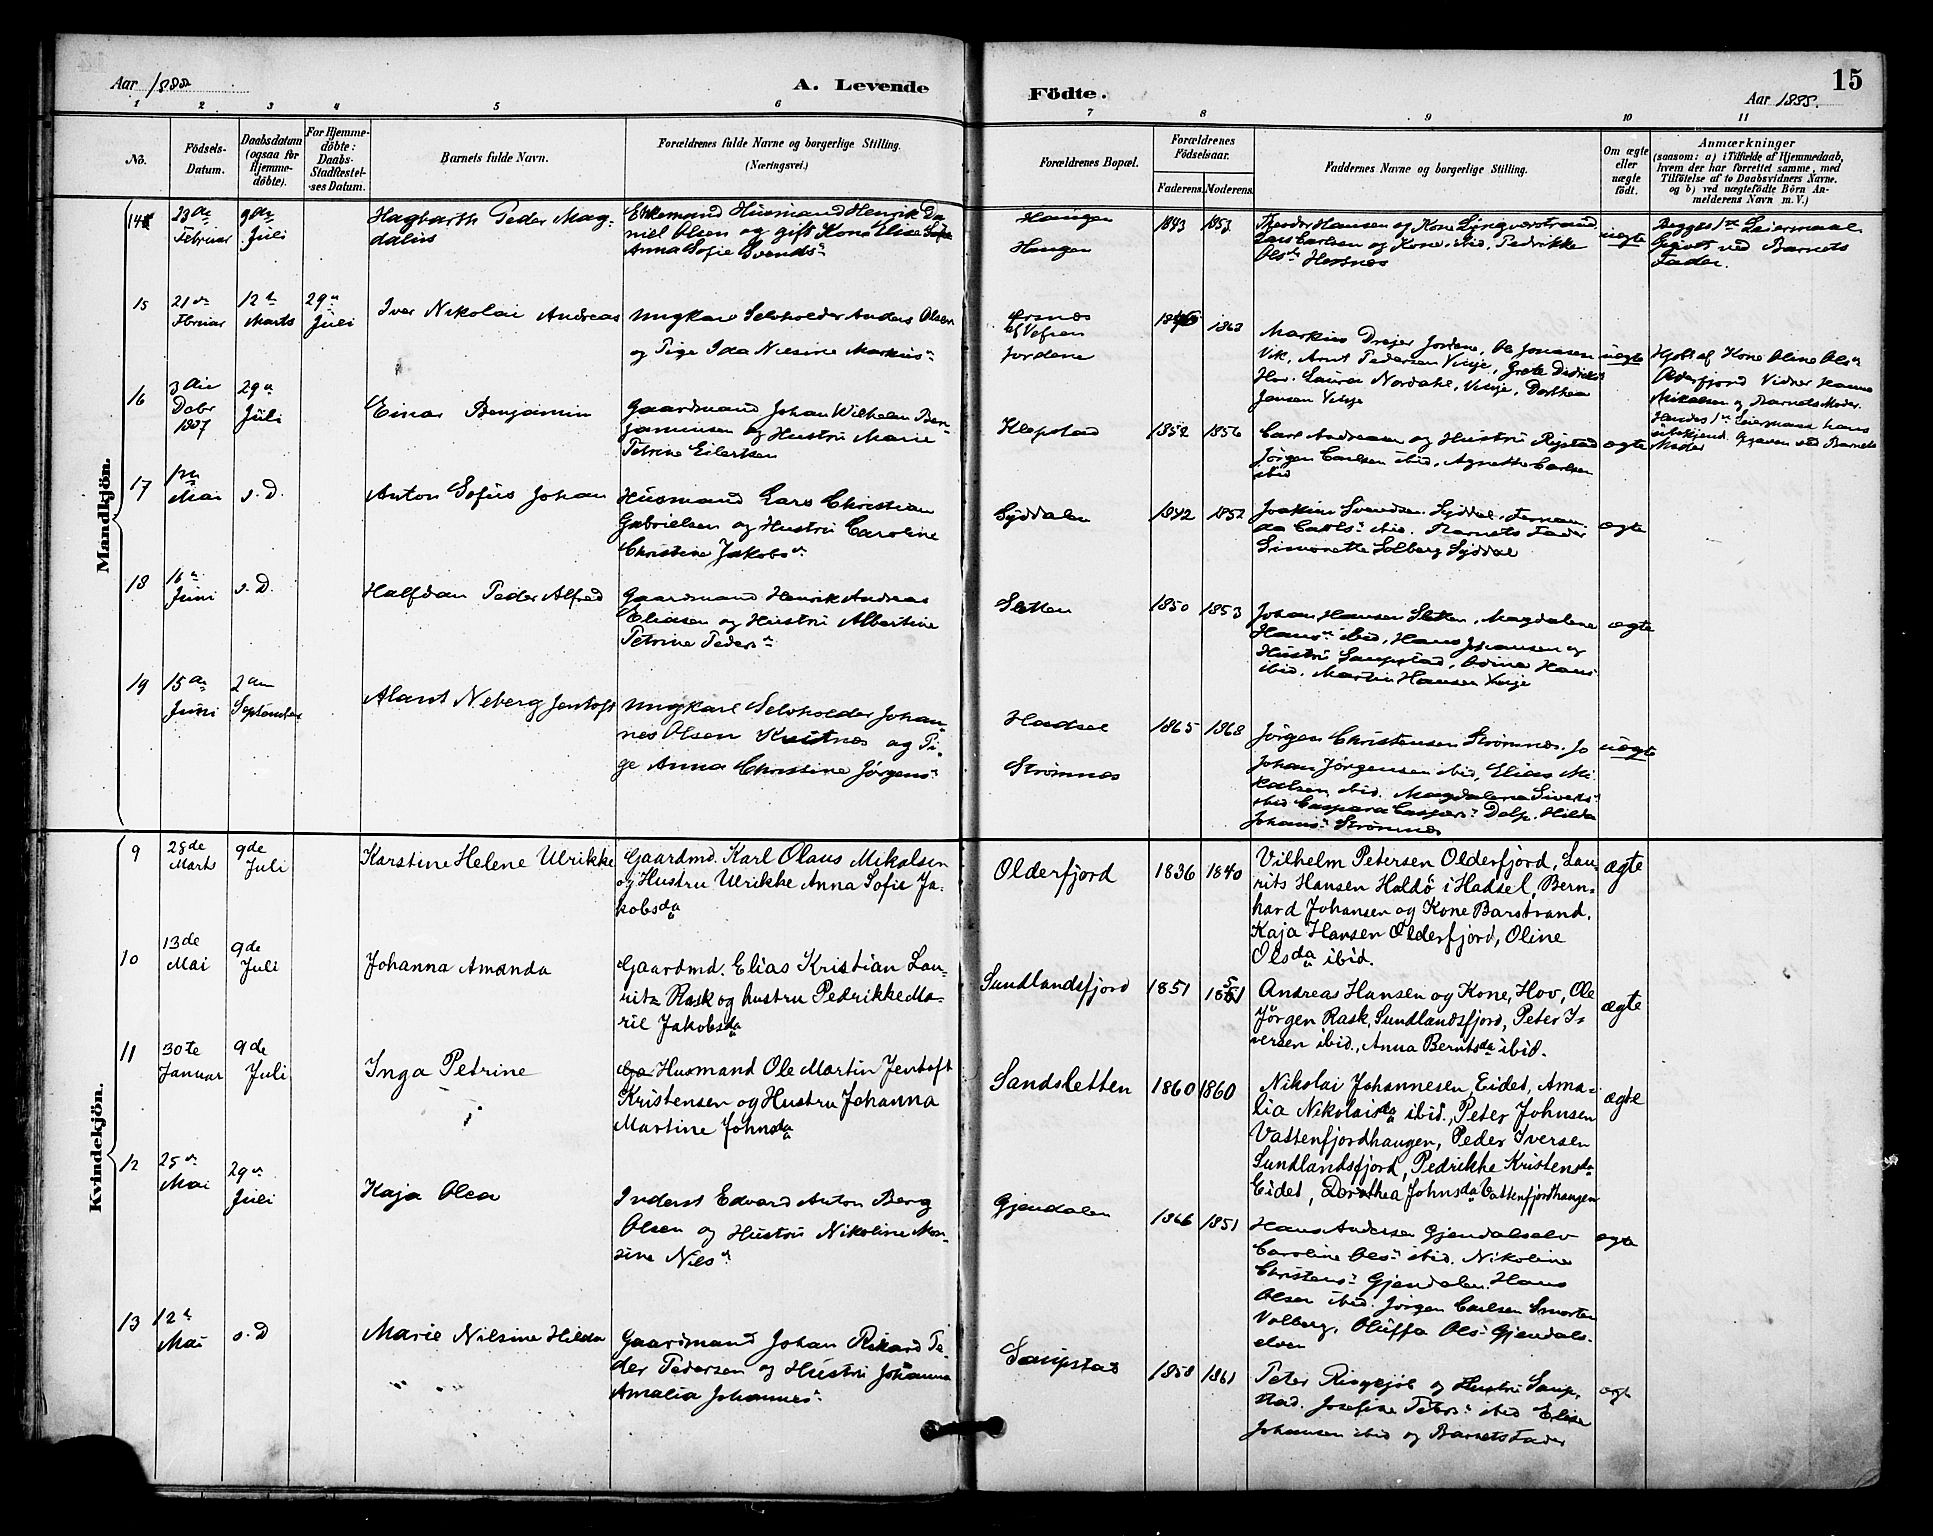 Aar 1888
A. Levende
Födte.
15
Aar 1888.
1 2 3 4 5 6 7 8 9 10 11
No.
Födsels-
Datum.
Daabsdatum
(ogsaa for
Hjemme-
döbte).
For Hjemme-
döbte:
Daabs-
Stadfæstel-
ses Datum.
Barnets fulde Navn.
Forældrenes fulde Navne og borgerlige Stilling.
(Næringsvei.)
Forældrenes Bopæl.
Forældrenes
Födselsaar.
Faderens. Moderens.
Faddernes Navne og borgerlige Stilling.
Om ægte
eller
uægte
födt.
Anmærkninger
(saasom: a) i Tilfælde af Hjemmedaab,
hvem der har forrettet samme, med
Tilföielse af to Daabsvidners Navne.
og b) ved uægtefödte Börn An-
melderens Navn m. V.)
Mandkjön.
14
23de
Februar
9de
Juli
Hagbarth Peder Mag-
dalius
Enkemand Husmand Henrik Da
niel Olsen og gift Kone Elise
Anna Sofie Svends
Haugen
Haugen
1843 1853
Theodor Hansen og Kone Lyngverstrand
Lars Carlsen og Kone ibid, Pedrikke
Ols Hersnes
uægte
Begges 1ste Leiermaal
Opgivet ved Barnets
Fader.
15
21de
Februar
12te
Marts
29de
Juli
Iver Nikolai Andreas
Ungkar Selvholder Anders Olsen
og Pige Ida Nilsine Markus
af Vefsen
Jordene
1863
Markus Drejer Jordene, Ole Jonassen
Vik, Arnt Pedersen Vinje, Grete Didriks
Hov. Laura Nordahl, Vinje, Dorthea
Jansen Vinje
uægte
Hjdbt af Kone Oline Ols
Olderfjord Vidner Hanna
Mikalsen og Barnets Moder.
Hendes 1ste Leiermaal hans
Opgaven ved Barnets
Moder
16
3die
Dcbr
1887
29de
Juli
Einar Benjamin
Gaardmand Johan Wilhelm Ben-
jaminsen og Hustru Marie
Petrine Eilertsen
Klepstad
1852 1856
Carl Andreasen og Hustru Rystad
Jörgen Carlsen ibid, Agnethe Carlsen
ibid
ægte
17
Mai
s. D.
Anton Sofus Johan
Husmand Lars Christian
Gabrielsen og Hustru Caroline
Christine Jakobs
Syddalen
1842 1852
Joakim Svendsen Syddal. Fernan-
da Carls ibid. Barnets Fader
Simonette Solberg Syddal
ægte
18
16de
Juni
s. D.
Halfdan Peder Alfred
Gaardmand Henrik Andreas
Eliasen og Hustru Albertine
Petrine Peders
Sletten
1850 1853
Johan Hansen Sletten, Magdalene
Hans ibid, Hans Johansen og
Hustru Saupstad, Ovina Hans
ibid, Martin Hansen Vinje
ægte
19
15de
Juni
2den
September
Alarit Neberg Jentoft
Ungkarl Selvholder Johan-
nes Olsen Kvitnes og Pi-
ge Anna Christine Jörgens
Hadsel
Strömnes
1865 1868
Jörgen Christensen Strömnes. Jo
Johan Jörgensen ibid, Elias Mi-
kalsen ibid. Magdalena Siverts
ibid Caspara Caspers Dalp, Hilda
Johans Strömnes
uægte
Kvindekjön.
9
28de
Marts
9de
Juli
Karstine Helene Ulrikke
Gaardmd. Karl Olaus Mikalsen
og Hustru Ulrikke Anna Sofie Ja-
kobsda
Olderfjord
1836 1840
Vilhelm Petersen Olderfjord, Lau-
rits Hansen Haldö i Hadsel, Bern-
hard Johansen og Kone Barstrand.
Kaja Hansen Olderfjord, Oline
Olsda ibid.
ægte
10
13de
Mai
9de
Juli
Johanna Amanda
Gaardmd. Elias Kristian Lau-
rits Rask og hustru Pedrikke Ma-
rie Jakobsda
Sundlandsfjord
1851 1851
Andreas Hansen og Kone, Hov, Ole
Jörgen Rask, Sundlandsfjord, Peter I-
versen ibid., Anna Berntsda ibid.
ægte
11
30te
Januar
9de
Juli
Inga Petrine
Ga Husmand Ole Martin Jentoft
Kristensen og Hustru Johanna
Martine Johnsda
Sandsletten
1860 1860
Nikolai Johannesen Eidet, Ama-
lia Nikolaisda ibid., Peter Johnsen
Vattenfjordhaugen, Peder Iversen
Sundlandsfjord, Pedrikke Kristensda
Eidet, Dorothea Johnsda Vattenfjordhaugen
ægte
12
25de
Mai
29de
Juli
Kaja Olea
Inderst Edvard Anton Berg
Olsen og Hustru Nikoline Mon-
sine Nils
Gjendalen
1866 1851
Hans Andersen Gjendalselv
Caroline Ols ibid. Nikoline
Christens Gjendalen. Hans
Olsen ibid. Jörgen Carlsen Smorten
Volberg, Oluffa Ols Gjendals-
elven
ægte
13
12te
Mai
s. D
Marie Nilsine Hilda
Gaardmand Johan Rikard Pe-
der Pedersen og Hustru Johanna
Amalia Johannes
Saupstad
1858 1861
Peter Ringkjöb og Hustru Saup-
stad. Josefine Peters ibid Elise
Johansen ibid og Barnets Fader
ægt